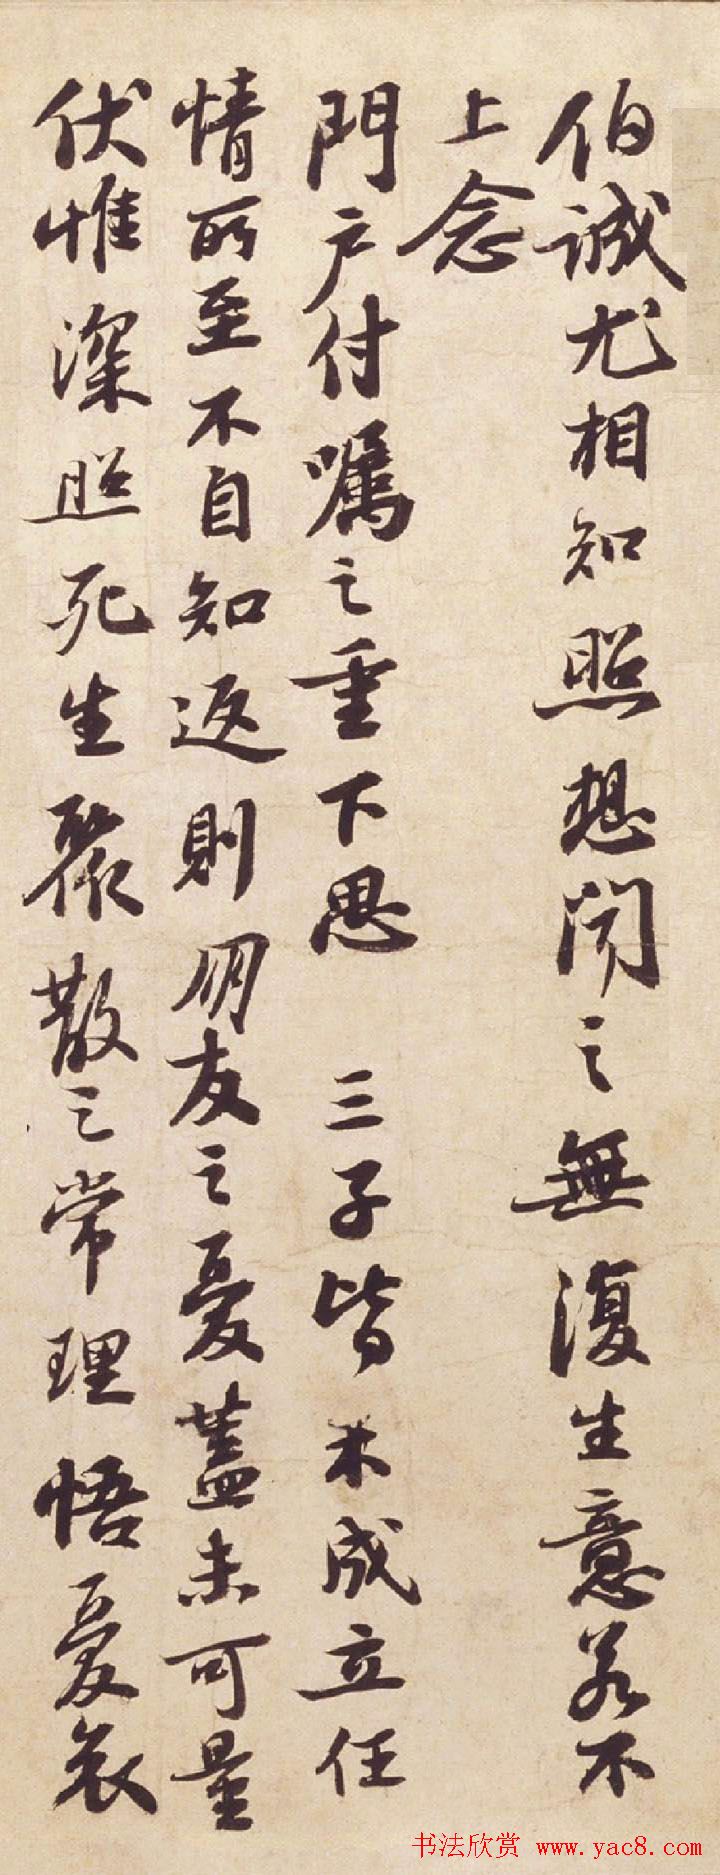 伯誠尤相知照想聞之無復生意若不
上念
門戶付囑之重下思 三子皆未成立任
情所至不自知返則朋友之憂蓋未可量
伏惟深照死生聚散之常理悟憂哀
书法欣赏 www.yac8.com